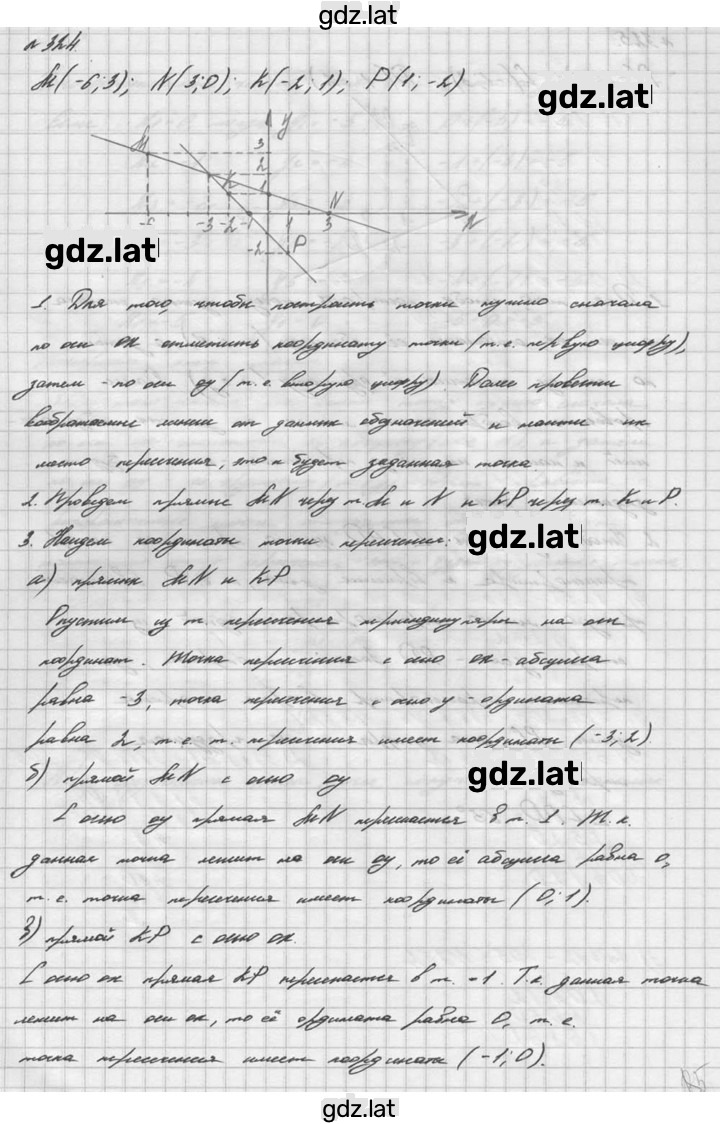 gdz.lat
№ 324.
M(-6;3); N(3;0); K(-2;1); P(1;-2)
gdz.lat
y
M 3
2
K 1 N
-6 -3 -2 -1 1 3 x
gdz.lat -2 P
1. Для того, чтобы построить точки нужно сначала
по оси ох отметить координату точки (т.е. первую цифру),
затем - по оси оу (т.е. вторую цифру). Далее провести
воображаемые линии от данных обозначений и найти их
место пересечения, это и будет заданная точка
2. Проведем прямые MN через т. M и N и KP через т. K и P.
3. Найдем координаты точки пересечения:
gdz.lat
а) прямых MN и KP
Опустим из т. пересечения перпендикуляры на оси
координат. Точка пересечения с осью ох - абсцисса
равна -3, точка пересечения с осью у - ордината
равна 2, т.е. т. пересечения имеет координаты (-3;2)
б) прямой MN с осью оу
gdz.lat
С осью оу прямая MN пересекается в т. 1. Т.к.
данная точка лежит на оси оу, то её абсцисса равна 0,
т.е. точка пересечения имеет координаты (0;1).
в) прямой KP с осью ох.
С осью ох прямая KP пересекается в т. -1. Т.к. данная точка
лежит на оси ох, то её ордината равна 0, т.е.
точка пересечения имеет координаты (-1;0).
gdz.lat